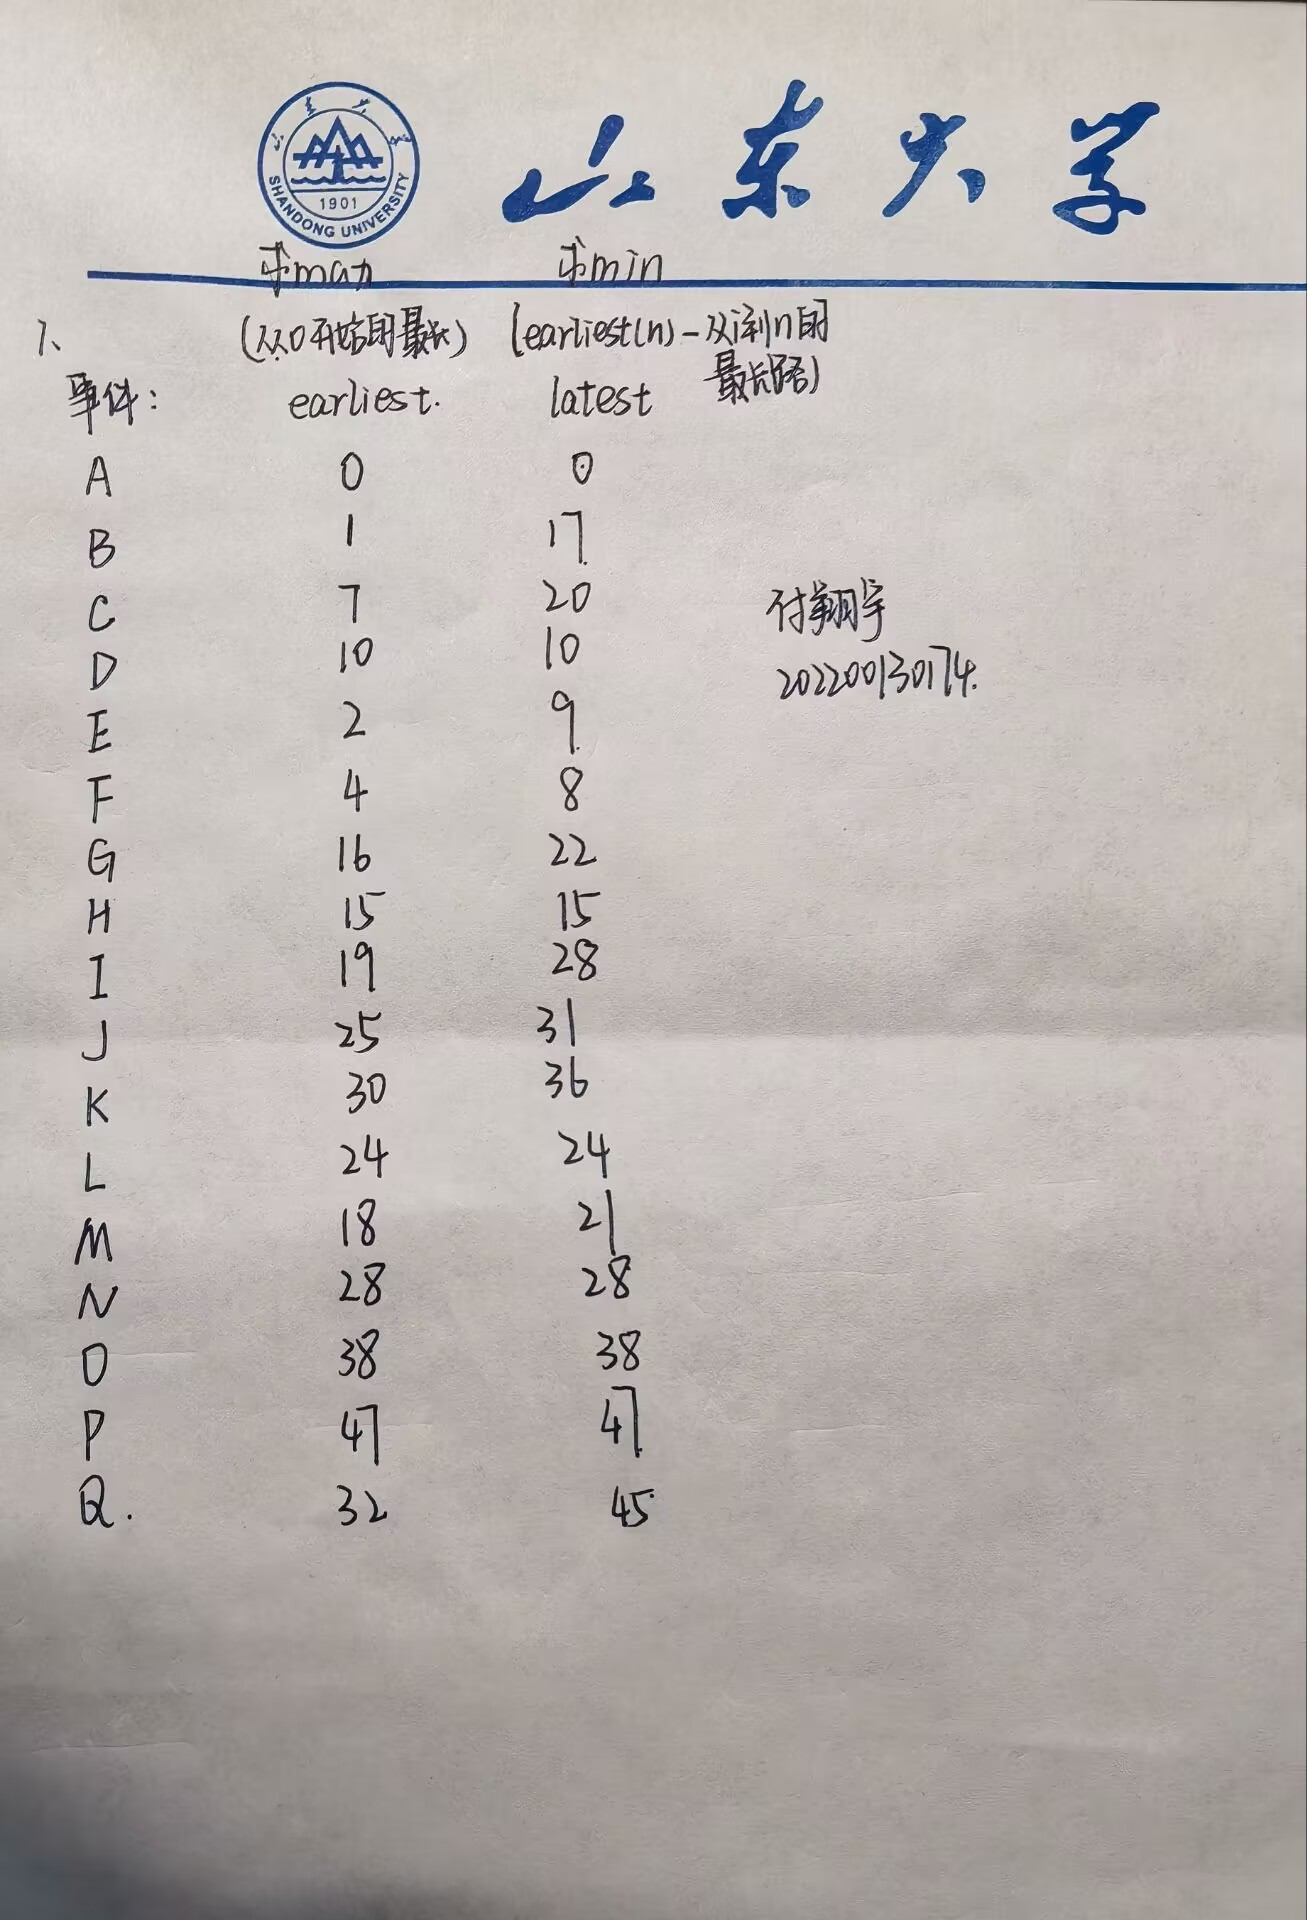 山东大学
SHANDONG UNIVERSITY
1901
求max 求min
1、 (从0开始的最长) (earliest(n)-从i到n的
最长路)
事件: earliest. latest
A 0 0
B 1 17
C 7 20
D 10 10
E 2 9
F 4 8
G 16 22
H 15 15
I 19 28
J 25 31
K 30 36
L 24 24
M 18 21
N 28 28
O 38 38
P 47 47
Q. 32 45
付翔宇
202200130174.